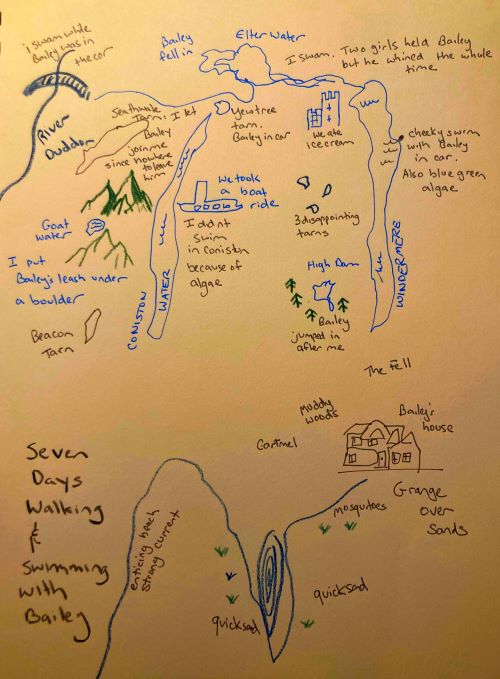 i swam while
Bailey was in
the car
River
Duddon
Seathwaite
Tarn. I let
Bailey
join me
since nowhere
to leave
him
Bailey
fell in
Elter Water
I swam. Two girls held Bailey
but he whined the whole
time
Yewtree
tarn.
Bailey in car
we ate
ice cream
cheeky swim
with Bailey
in car.
Also blue green
algae
we took
a boat
ride
Goat
water
I put
Bailey's leash under
a boulder
I didnt
swim
in Coniston
because of
algae
3 disappointing
tarns
CONISTON
WATER
WINDERMERE
High Dam
Bailey
jumped in
after me
Beacon
Tarn
The Fell
Muddy
woods
Bailey's
house
Cartmel
Grange
over
Sands
mosquitoes
Seven
Days
Walking
&
Swimming
with
Bailey
enticing beach
strong current
quicksad
quicksad